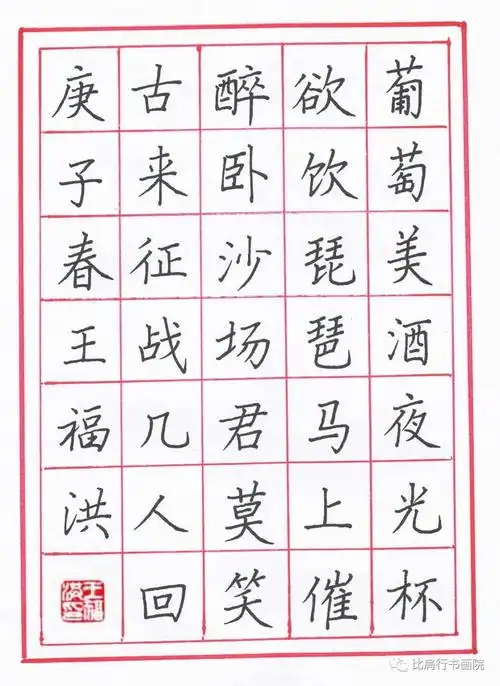 葡萄美酒夜光杯
欲饮琵琶马上催
醉卧沙场君莫笑
古来征战几人回
庚子春王福洪
王福洪印
比肩行书画院